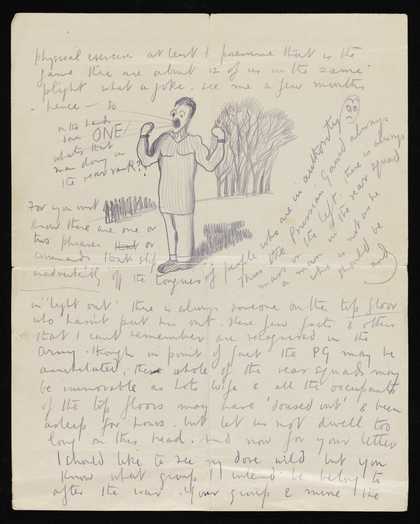 physical exercise at least I presume that is the
game there are about 12 of us in the same
plight what a joke. see me a few months
hence - so
on the hands
down ONE!
whats that
man doing in
the rear rank?!
For you must
know there are one or
two phrases or
commands that slip
inadvertently off the tongues of people who are in authority
Thus the Prussian Guard always
mass on the left, there is always
a man in the rear squad
who is not as he
should be
and
in 'light out' there is always someone on the top floor
who hasn't put his out. These few facts & others
that I cant remember are recognised in the
army. though in point of fact the PG may be
annihilated, the whole of the rear squad may
be immovable as Lots wife & all the occupants
of the top floors may have 'doused out' & been
asleep for hours. but let us not dwell too
long on this head. And now for your letter
I should like to see my dove wild but you
know what group I intend to belong to
after the war. Your group & mine like